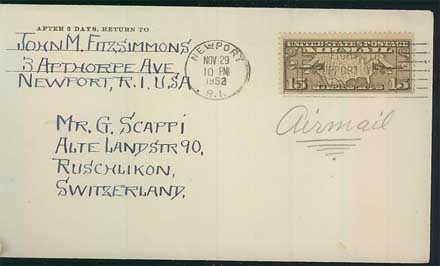 AFTER 5 DAYS, RETURN TO
JOHN M. FITZSIMMONS
3 APTHORPE AVE
NEWPORT, R.I. USA
NEWPORT
NOV 29
10 PM
1952
R.I.
UNITED STATES POSTAGE
15
15
Airmail
MR. G. SCAPPI
ALTE LANDSTR 90,
RUSCHLIKON,
SWITZERLAND.